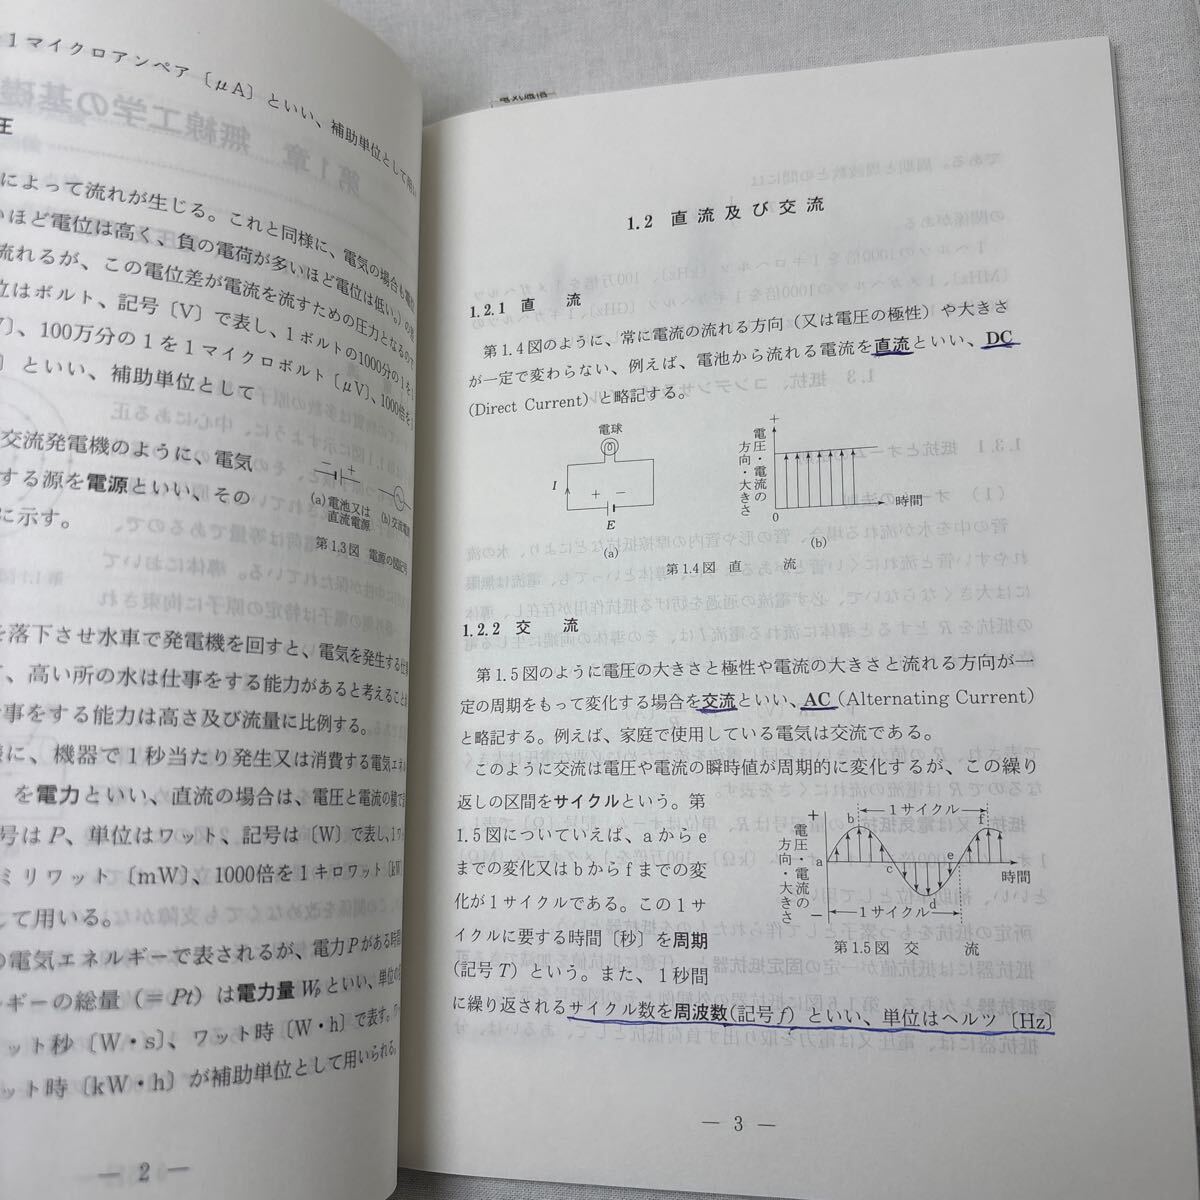 1マイクロアンペア〔μA〕といい、補助単位として
圧
によって流れが生じる。これと同様に、電気の場合も
いほど電位は高く、負の電荷が多いほど電位は低い。）の
流れるが、この電位差が電流を流すための圧力となるので
位はボルト、記号〔V〕で表し、1ボルトの1000分の1を
、100万分の1を1マイクロボルト〔μV〕、1000倍を
〕といい、補助単位として
交流発電機のように、電気
する源を電源といい、その
に示す。
(a)電池又は
直流電源
(b)交流電源
第1.3図 電源の図記号
を落下させ水車で発電機を回すと、電気を発生する仕
、高い所の水は仕事をする能力があると考えること
事をする能力は高さ及び流量に比例する。
に、機器で1秒当たり発生又は消費する電気エネル
を電力といい、直流の場合は、電圧と電流の積で
号はP、単位はワット、記号は〔W〕で表し、1ワ
ミリワット〔mW〕、1000倍を1キロワット〔kW〕
して用いる。
の電気エネルギーで表されるが、電力Pがある時間
ギーの総量（＝Pt）は電力量Wpといい、単位の
ット秒〔W・s〕、ワット時〔W・h〕で表す。
ット時〔kW・h〕が補助単位として用いられる。
— 2 —
1.2 直流及び交流
1.2.1 直 流
第1.4図のように、常に電流の流れる方向（又は電圧の極性）や大きさ
が一定で変わらない、例えば、電池から流れる電流を直流といい、DC
(Direct Current) と略記する。
電球
I
＋ −
E
(a)
電圧・電流の
方向・大きさ
＋
0
時間
(b)
第1.4図 直 流
1.2.2 交 流
第1.5図のように電圧の大きさと極性や電流の大きさと流れる方向が一
定の周期をもって変化する場合を交流といい、AC (Alternating Current)
と略記する。例えば、家庭で使用している電気は交流である。
このように交流は電圧や電流の瞬時値が周期的に変化するが、この繰り
返しの区間をサイクルという。第
1.5図についていえば、aからe
までの変化又はbからfまでの変
化が1サイクルである。この1サ
イクルに要する時間〔秒〕を周期
(記号T) という。また、1秒間
に繰り返されるサイクル数を周波数(記号f) といい、単位はヘルツ〔Hz〕
電圧・電流の
方向・大きさ
＋
−
1サイクル
a
b
c
d
e
f
時間
1サイクル
第1.5図 交 流
— 3 —